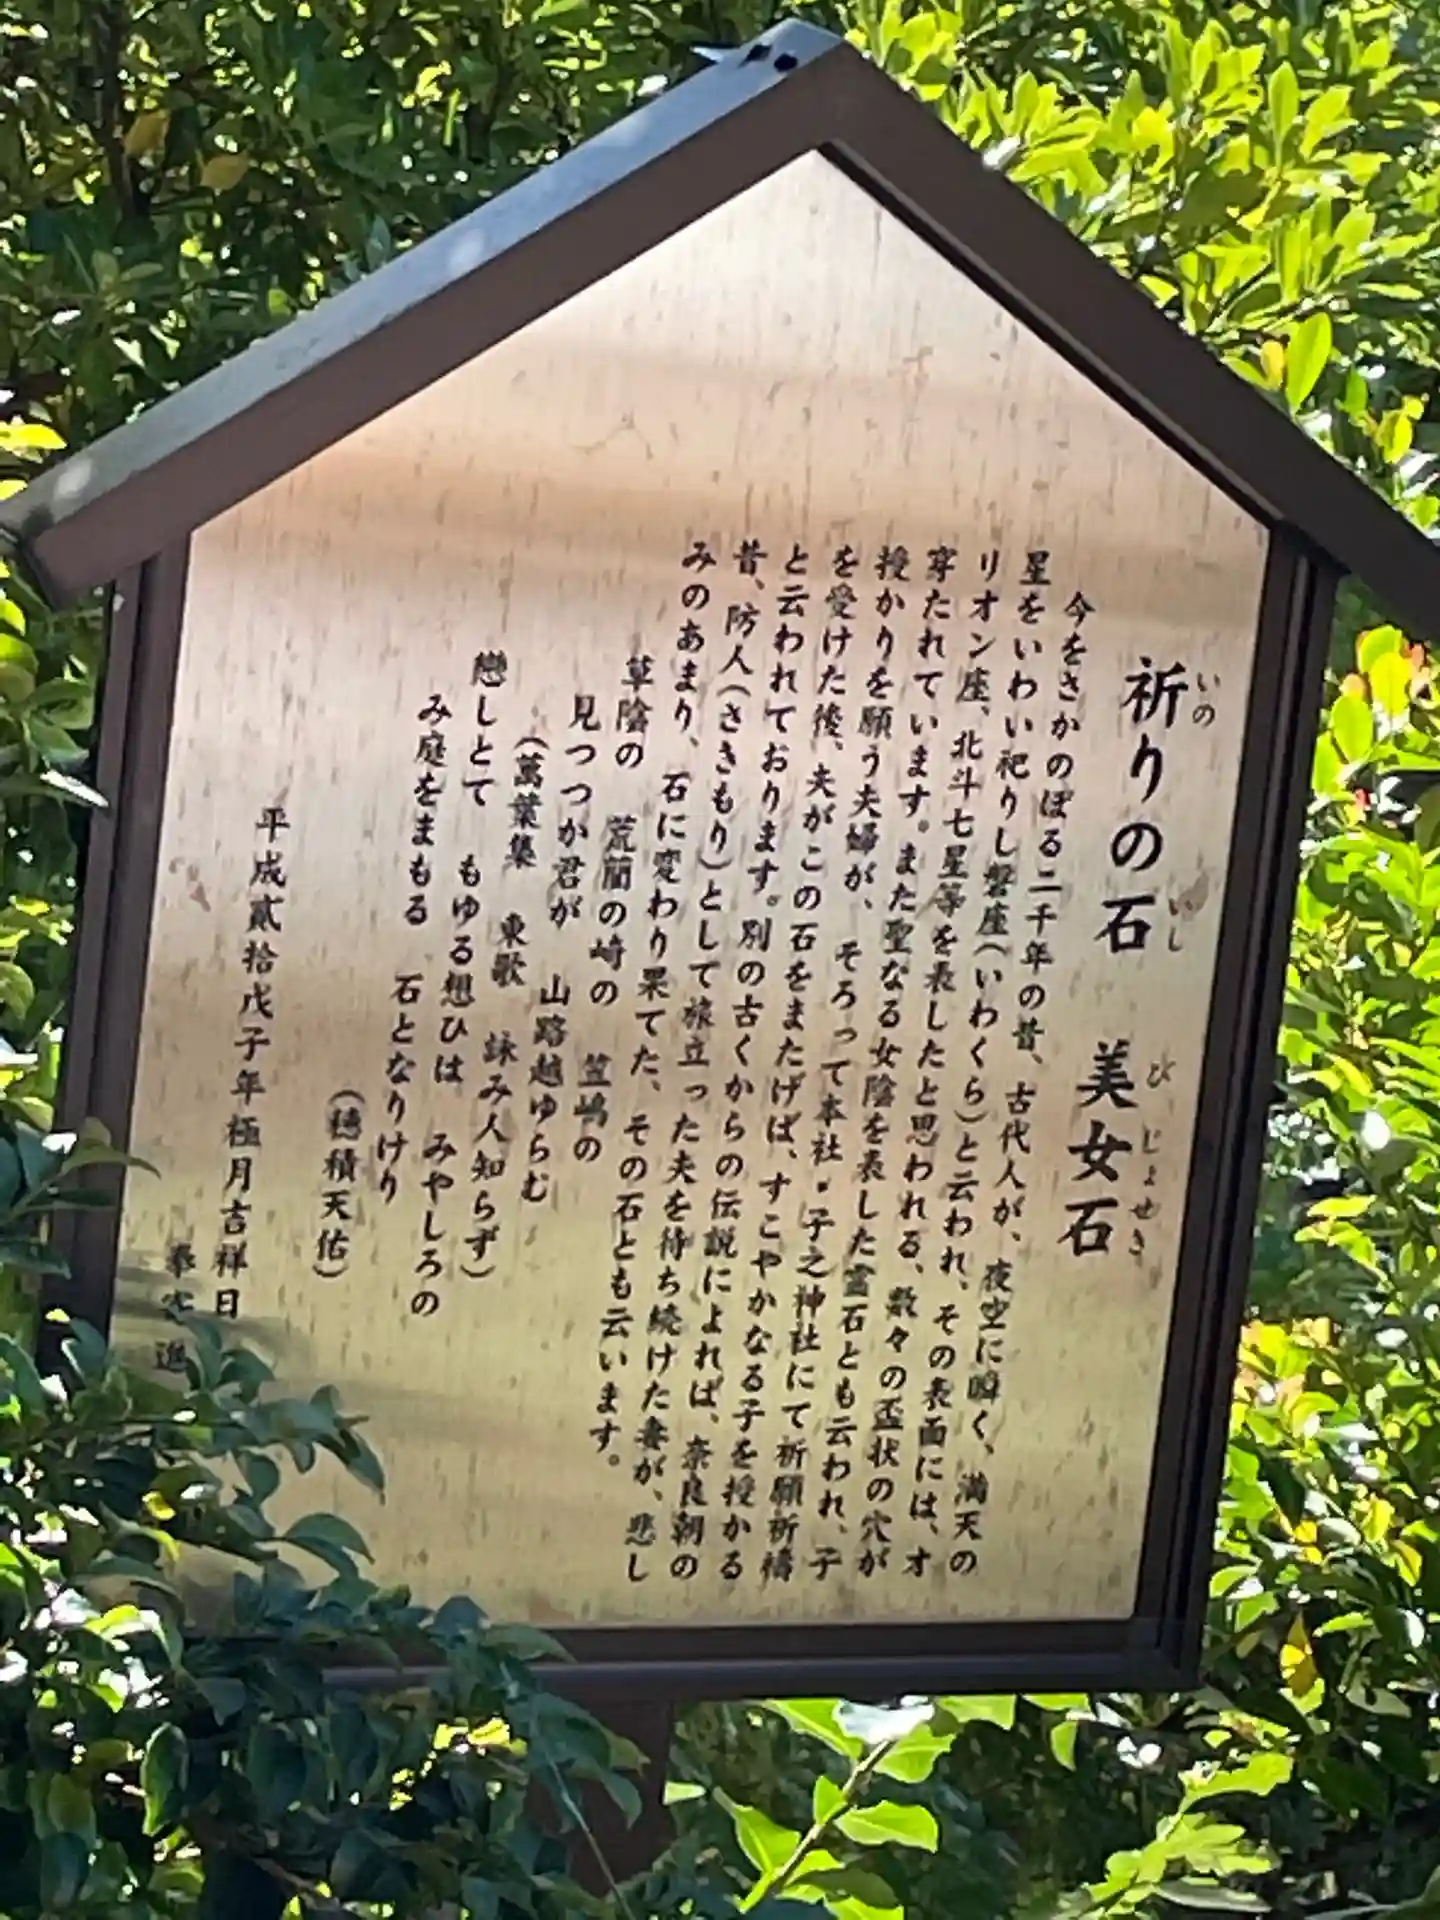 祈りの石　美女石
いの　いし　びじょせき
今をさかのぼる二千年の昔、古代人が、夜空に瞬く、満天の
星をいわい祀りし磐座(いわくら)と云われ、その表面には、オ
リオン座、北斗七星等を表したと思われる、数々の盃状の穴が
穿たれています。また聖なる女陰を表した霊石とも云われ、子
授かりを願う夫婦が、そろって本社・子之神社にて祈願祈禱
を受けた後、夫がこの石をまたげば、すこやかなる子を授かる
と云われております。別の古くからの伝説によれば、奈良朝の
昔、防人(さきもり)として旅立った夫を待ち続けた妻が、悲し
みのあまり、石に変わり果てた、その石とも云います。
草陰の　荒藺の崎の　笠嶋の
見つつか君が　山路越ゆらむ
(萬葉集　東歌　詠み人知らず)
戀しとて　もゆる想ひは　みやしろの
み庭をまもる　石となりけり
(穂積天佑)
平成貳拾戊子年極月吉祥日
奉 進